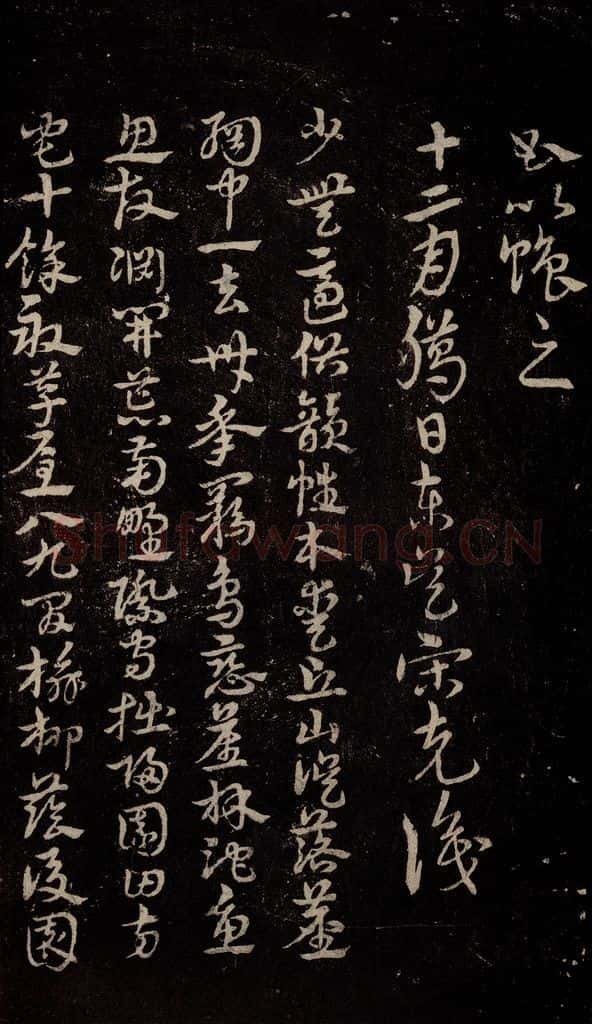 書以之
十二月臈日東吳宋克識
少無適俗韻性本愛丘山誤落塵
網中一去卅年羈鳥戀舊林池魚
思故淵開荒南野際守拙歸園田方
宅十餘畝草屋八九間榆柳蔭後園
Shufawang.CN